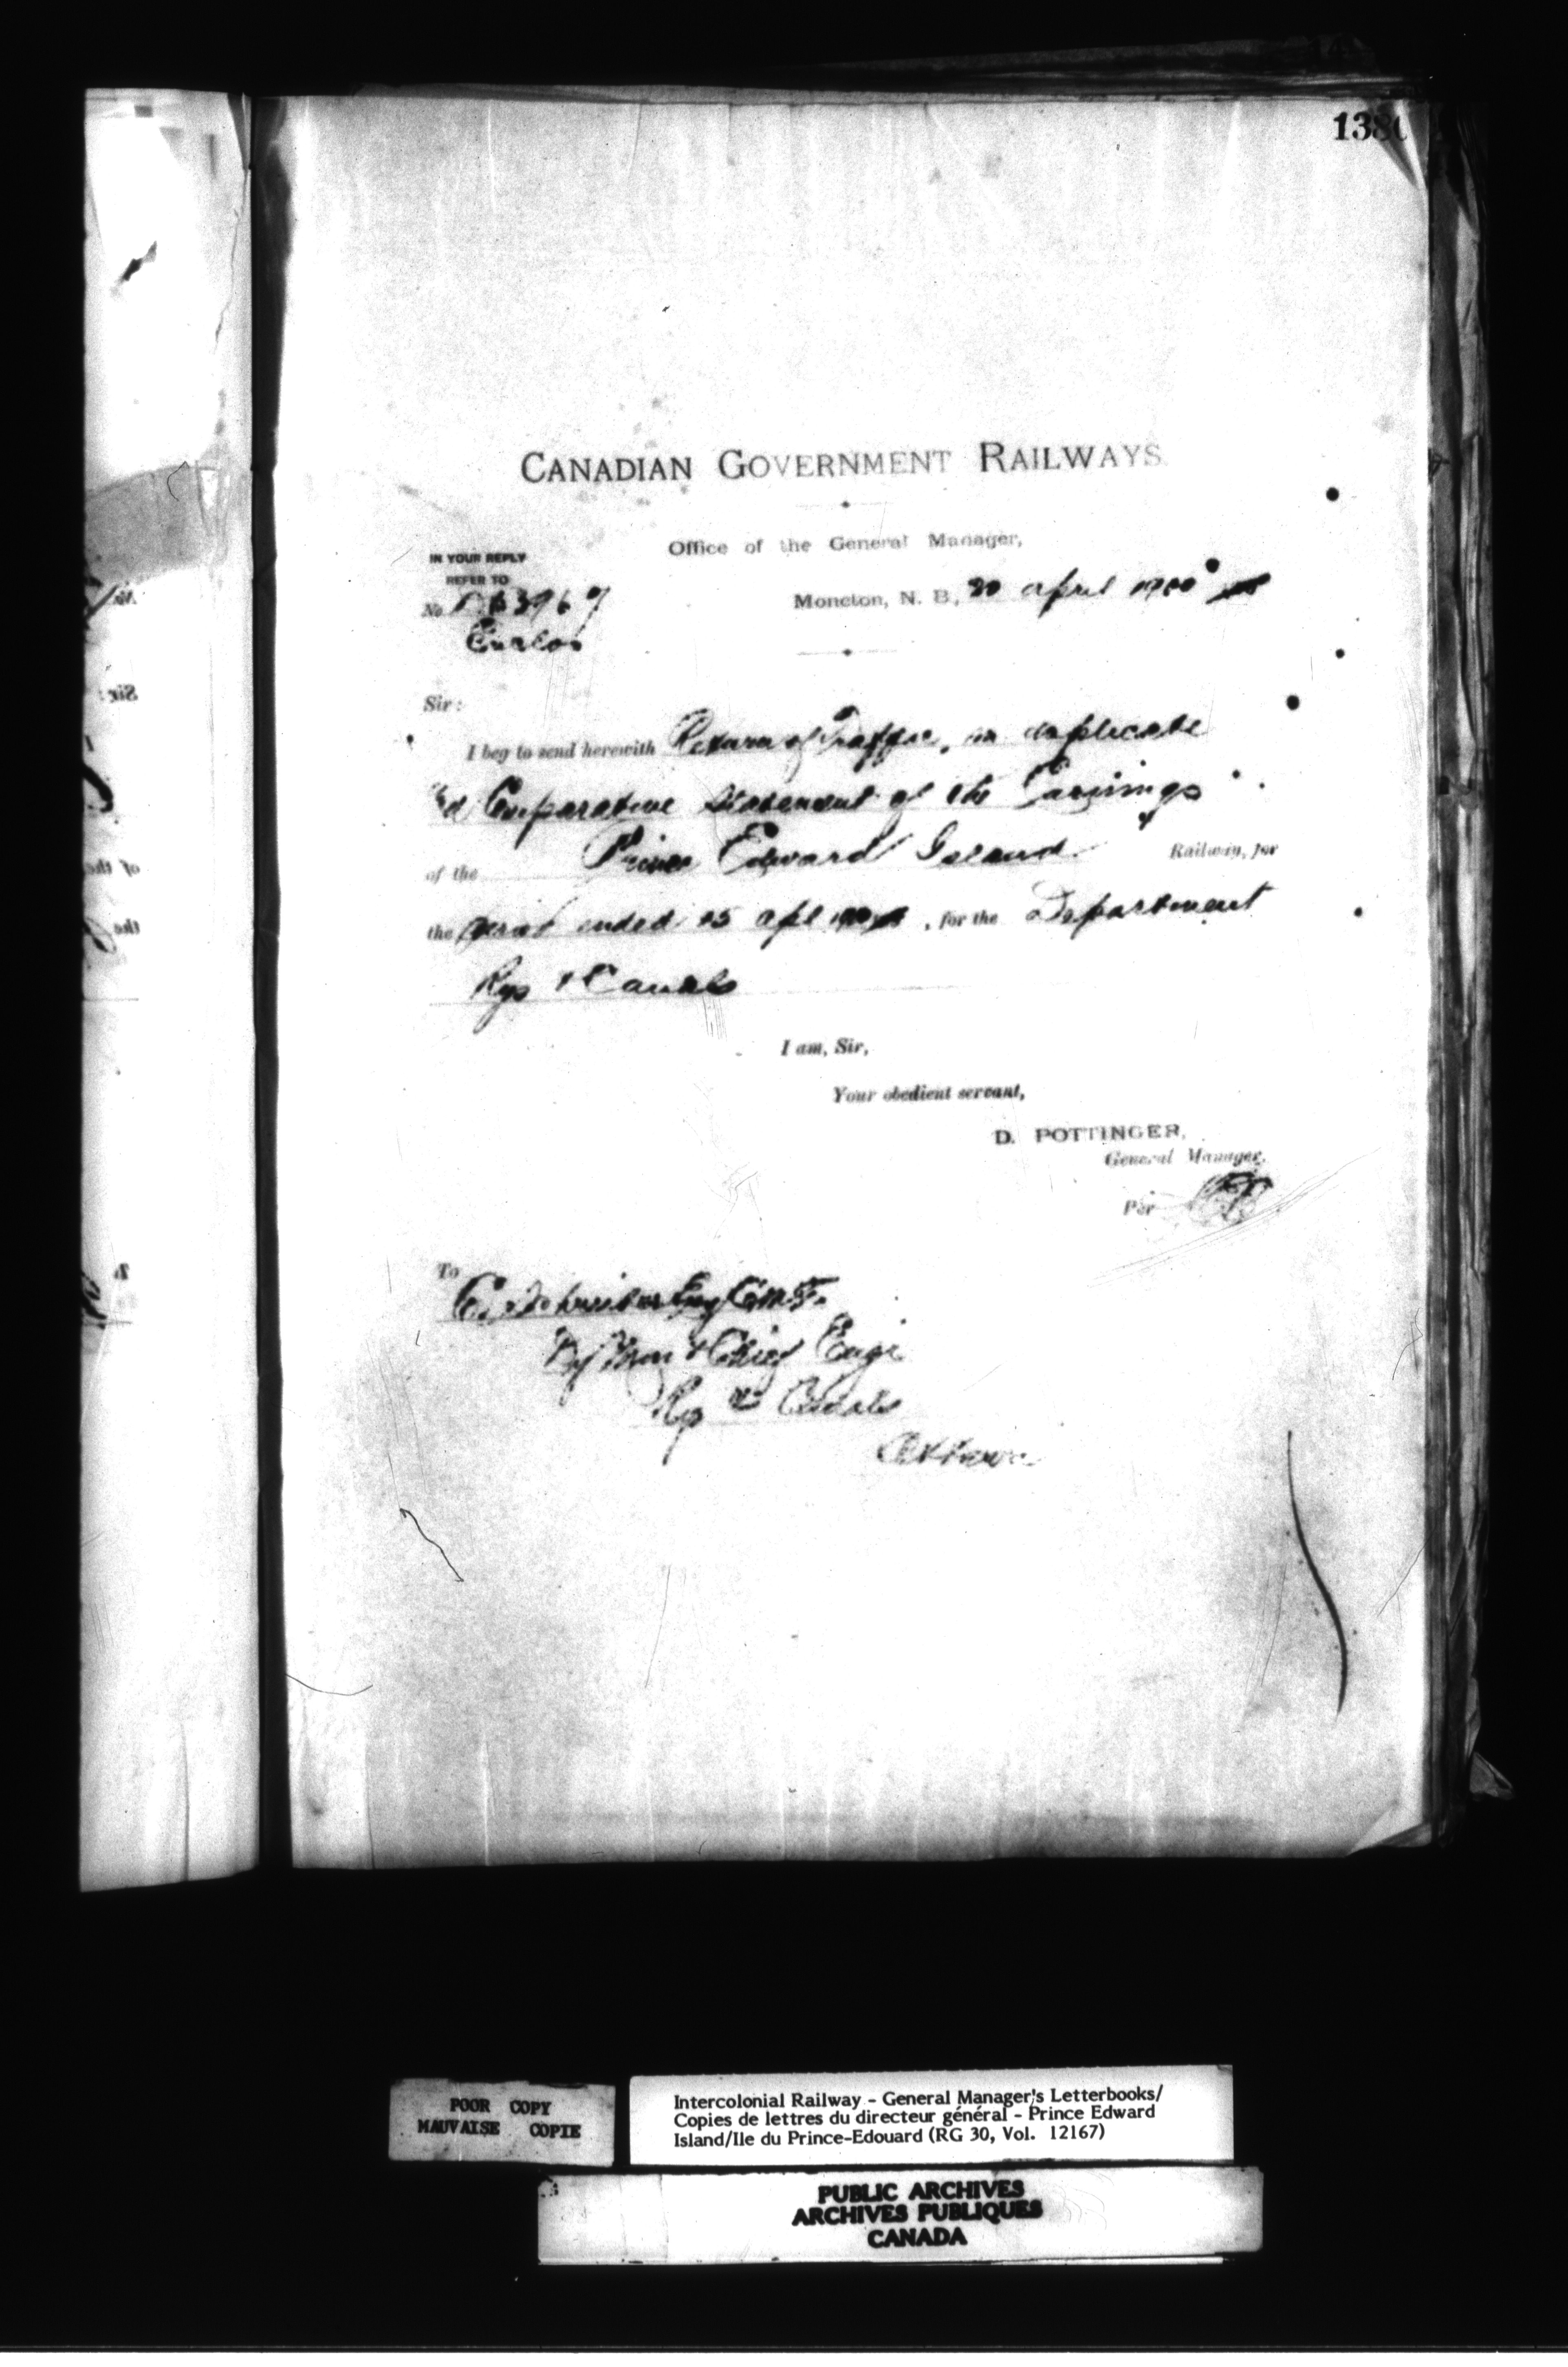 138
CANADIAN GOVERNMENT RAILWAYS.
Office of the General Manager,
IN YOUR REPLY
REFER TO
No.
Moncton, N. B., 20 April 1900
Sir:
I beg to send herewith Return of Traffic, in duplicate
Comparative Statement of the Earnings
of the Prince Edward Island Railway, for
the ended 15 Apl 190 , for the Department
Rys & Canals
I am, Sir,
Your obedient servant,
D. POTTINGER,
General Manager.
Per
To
C. Schreiber Esq C.M.G.
Dy Min & Chief Engr
Rys & Canals
Ottawa
POOR COPY
MAUVAISE COPIE
Intercolonial Railway - General Manager's Letterbooks/
Copies de lettres du directeur général - Prince Edward
Island/Ile du Prince-Edouard (RG 30, Vol. 12167)
PUBLIC ARCHIVES
ARCHIVES PUBLIQUES
CANADA